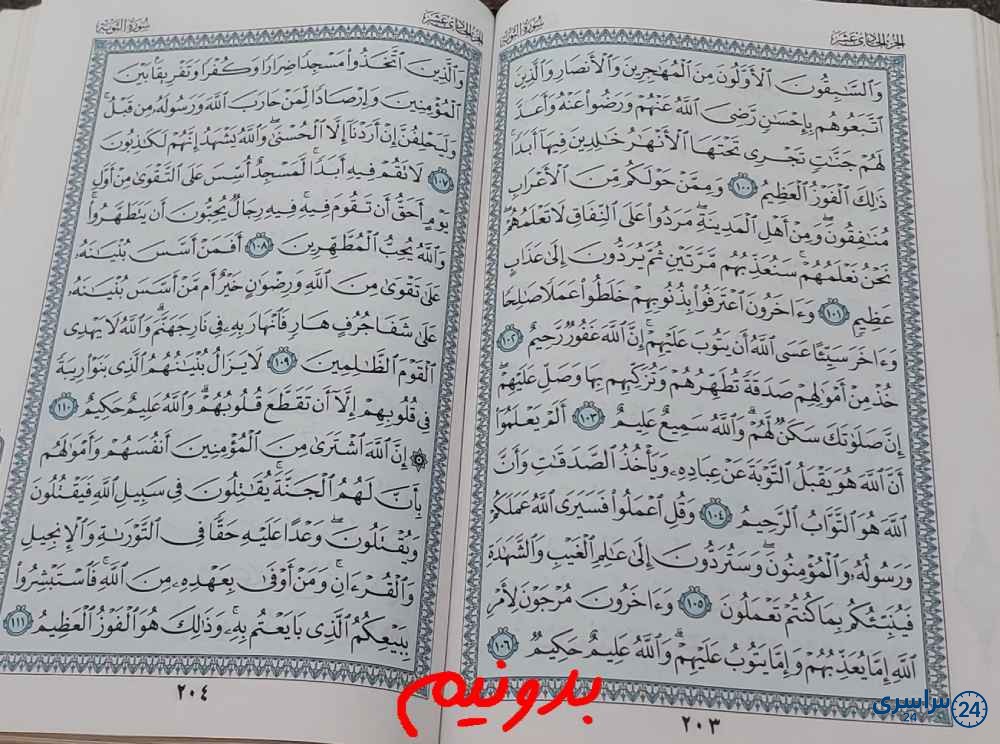 الجزء الحادي عشر
سورة التوبة
وَٱلسَّٰبِقُونَ ٱلْأَوَّلُونَ مِنَ ٱلْمُهَٰجِرِينَ وَٱلْأَنصَارِ وَٱلَّذِينَ
ٱتَّبَعُوهُم بِإِحْسَٰنٍ رَّضِىَ ٱللَّهُ عَنْهُمْ وَرَضُوا۟ عَنْهُ وَأَعَدَّ
لَهُمْ جَنَّٰتٍ تَجْرِى تَحْتَهَا ٱلْأَنْهَٰرُ خَٰلِدِينَ فِيهَآ أَبَدًا ۚ
ذَٰلِكَ ٱلْفَوْزُ ٱلْعَظِيمُ ١٠٠ وَمِمَّنْ حَوْلَكُم مِّنَ ٱلْأَعْرَابِ
مُنَٰفِقُونَ ۖ وَمِنْ أَهْلِ ٱلْمَدِينَةِ ۖ مَرَدُوا۟ عَلَى ٱلنِّفَاقِ لَا تَعْلَمُهُمْ ۖ
نَحْنُ نَعْلَمُهُمْ ۚ سَنُعَذِّبُهُم مَّرَّتَيْنِ ثُمَّ يُرَدُّونَ إِلَىٰ عَذَابٍ
عَظِيمٍ ١٠١ وَءَاخَرُونَ ٱعْتَرَفُوا۟ بِذُنُوبِهِمْ خَلَطُوا۟ عَمَلًا صَٰلِحًا
وَءَاخَرَ سَيِّئًا عَسَى ٱللَّهُ أَن يَتُوبَ عَلَيْهِمْ ۚ إِنَّ ٱللَّهَ غَفُورٌ رَّحِيمٌ ١٠٢
خُذْ مِنْ أَمْوَٰلِهِمْ صَدَقَةً تُطَهِّرُهُمْ وَتُزَكِّيهِم بِهَا وَصَلِّ عَلَيْهِمْ ۖ
إِنَّ صَلَوٰتَكَ سَكَنٌ لَّهُمْ ۗ وَٱللَّهُ سَمِيعٌ عَلِيمٌ ١٠٣ أَلَمْ يَعْلَمُوٓا۟
أَنَّ ٱللَّهَ هُوَ يَقْبَلُ ٱلتَّوْبَةَ عَنْ عِبَادِهِۦ وَيَأْخُذُ ٱلصَّدَقَٰتِ وَأَنَّ
ٱللَّهَ هُوَ ٱلتَّوَّابُ ٱلرَّحِيمُ ١٠٤ وَقُلِ ٱعْمَلُوا۟ فَسَيَرَى ٱللَّهُ عَمَلَكُمْ
وَرَسُولُهُۥ وَٱلْمُؤْمِنُونَ ۖ وَسَتُرَدُّونَ إِلَىٰ عَٰلِمِ ٱلْغَيْبِ وَٱلشَّهَٰدَةِ
فَيُنَبِّئُكُم بِمَا كُنتُمْ تَعْمَلُونَ ١٠٥ وَءَاخَرُونَ مُرْجَوْنَ لِأَمْرِ
ٱللَّهِ إِمَّا يُعَذِّبُهُمْ وَإِمَّا يَتُوبُ عَلَيْهِمْ ۗ وَٱللَّهُ عَلِيمٌ حَكِيمٌ ١٠٦
٢٠٣
الجزء الحادي عشر
سورة التوبة
وَٱلَّذِينَ ٱتَّخَذُوا۟ مَسْجِدًا ضِرَارًا وَكُفْرًا وَتَفْرِيقًۢا بَيْنَ
ٱلْمُؤْمِنِينَ وَإِرْصَادًا لِّمَنْ حَارَبَ ٱللَّهَ وَرَسُولَهُۥ مِن قَبْلُ ۚ
وَلَيَحْلِفُنَّ إِنْ أَرَدْنَآ إِلَّا ٱلْحُسْنَىٰ ۖ وَٱللَّهُ يَشْهَدُ إِنَّهُمْ لَكَٰذِبُونَ
١٠٧ لَا تَقُمْ فِيهِ أَبَدًا ۚ لَّمَسْجِدٌ أُسِّسَ عَلَى ٱلتَّقْوَىٰ مِنْ أَوَّلِ
يَوْمٍ أَحَقُّ أَن تَقُومَ فِيهِ ۚ فِيهِ رِجَالٌ يُحِبُّونَ أَن يَتَطَهَّرُوا۟ ۚ
وَٱللَّهُ يُحِبُّ ٱلْمُطَّهِّرِينَ ١٠٨ أَفَمَنْ أَسَّسَ بُنْيَٰنَهُۥ
عَلَىٰ تَقْوَىٰ مِنَ ٱللَّهِ وَرِضْوَٰنٍ خَيْرٌ أَم مَّنْ أَسَّسَ بُنْيَٰنَهُۥ
عَلَىٰ شَفَا جُرُفٍ هَارٍ فَٱنْهَارَ بِهِۦ فِى نَارِ جَهَنَّمَ ۗ وَٱللَّهُ لَا يَهْدِى
ٱلْقَوْمَ ٱلظَّٰلِمِينَ ١٠٩ لَا يَزَالُ بُنْيَٰنُهُمُ ٱلَّذِى بَنَوْا۟ رِيبَةً
فِى قُلُوبِهِمْ إِلَّآ أَن تَقَطَّعَ قُلُوبُهُمْ ۗ وَٱللَّهُ عَلِيمٌ حَكِيمٌ ١١٠
۞ إِنَّ ٱللَّهَ ٱشْتَرَىٰ مِنَ ٱلْمُؤْمِنِينَ أَنفُسَهُمْ وَأَمْوَٰلَهُم
بِأَنَّ لَهُمُ ٱلْجَنَّةَ ۚ يُقَٰتِلُونَ فِى سَبِيلِ ٱللَّهِ فَيَقْتُلُونَ
وَيُقْتَلُونَ ۖ وَعْدًا عَلَيْهِ حَقًّا فِى ٱلتَّوْرَىٰةِ وَٱلْإِنجِيلِ
وَٱلْقُرْءَانِ ۚ وَمَنْ أَوْفَىٰ بِعَهْدِهِۦ مِنَ ٱللَّهِ ۚ فَٱسْتَبْشِرُوا۟
بِبَيْعِكُمُ ٱلَّذِى بَايَعْتُم بِهِۦ ۚ وَذَٰلِكَ هُوَ ٱلْفَوْزُ ٱلْعَظِيمُ ١١١
٢٠٤
بدونیم
سراسری
24
24